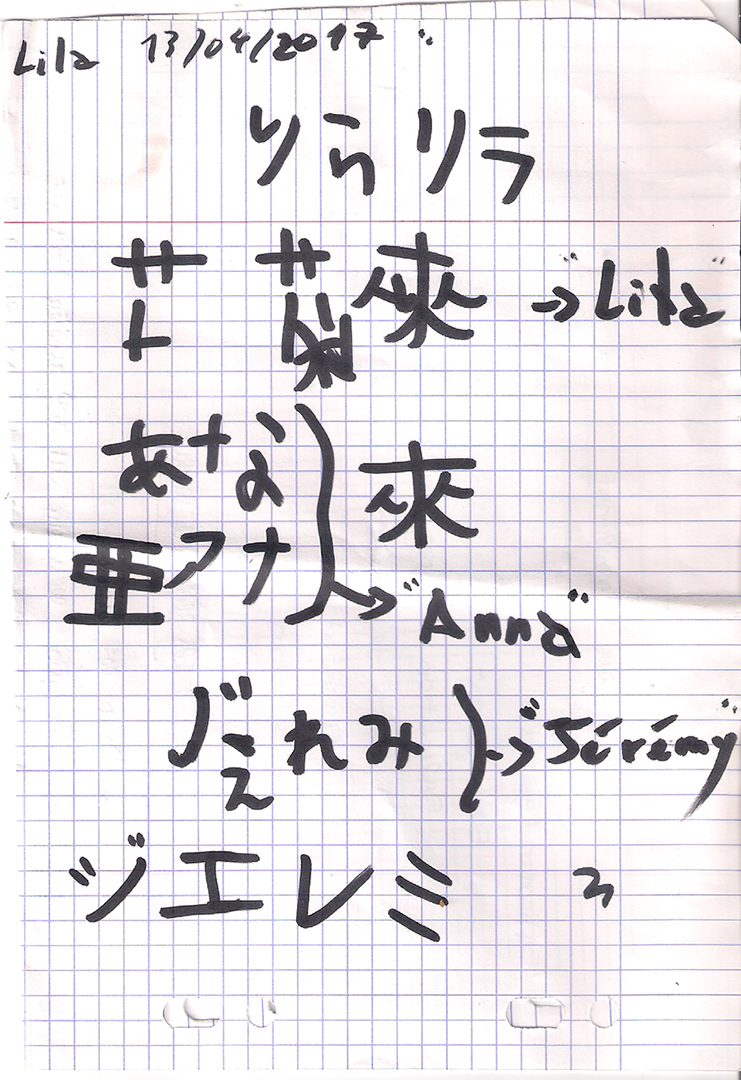 Lila 13/04/2017
りら リラ
來 → "Lila"
あな 來
亜 アナ → "Anna"
じえれみ → "Jérémy"
ジエレミ